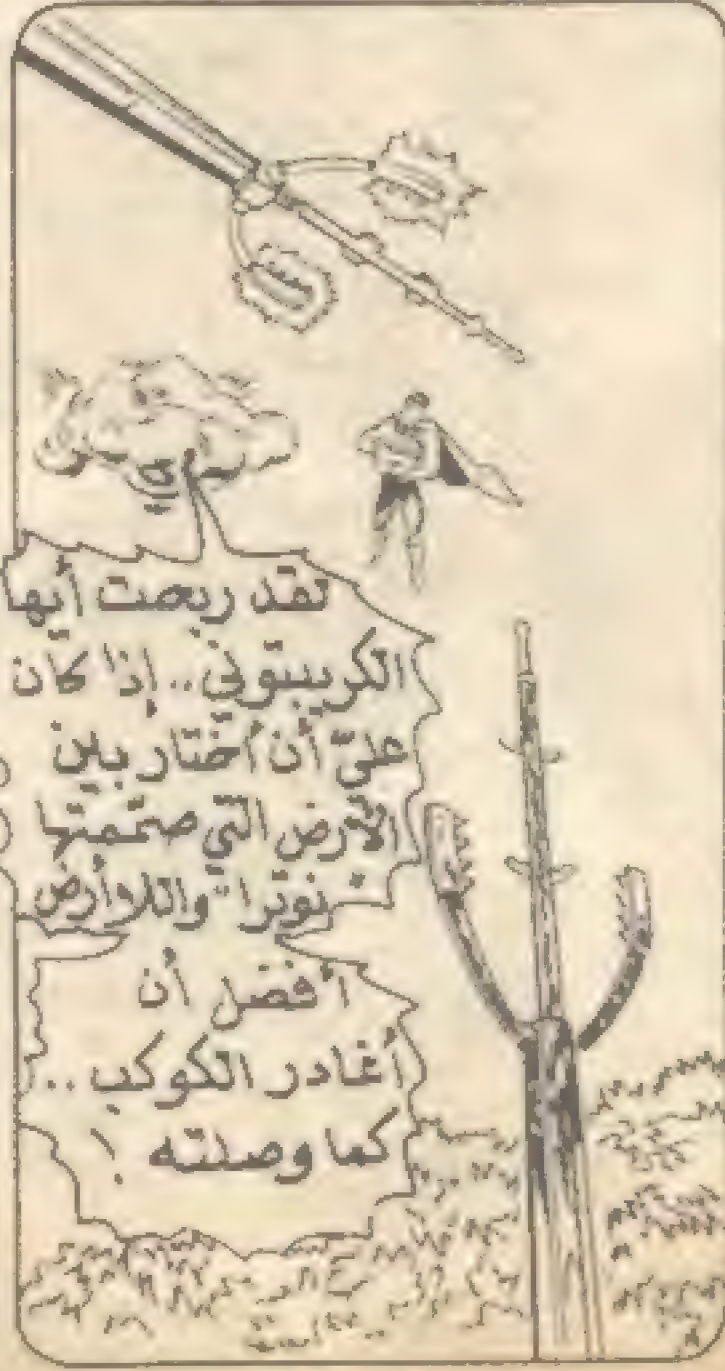 لقد ربحت أيها
الكريبتوني.. إذا كان
عليّ أن أختار بين
الأرض التي صمّمتها
"نوترا" واللاأرض
أفضل أن
أغادر الكوكب..
كما وصلته!